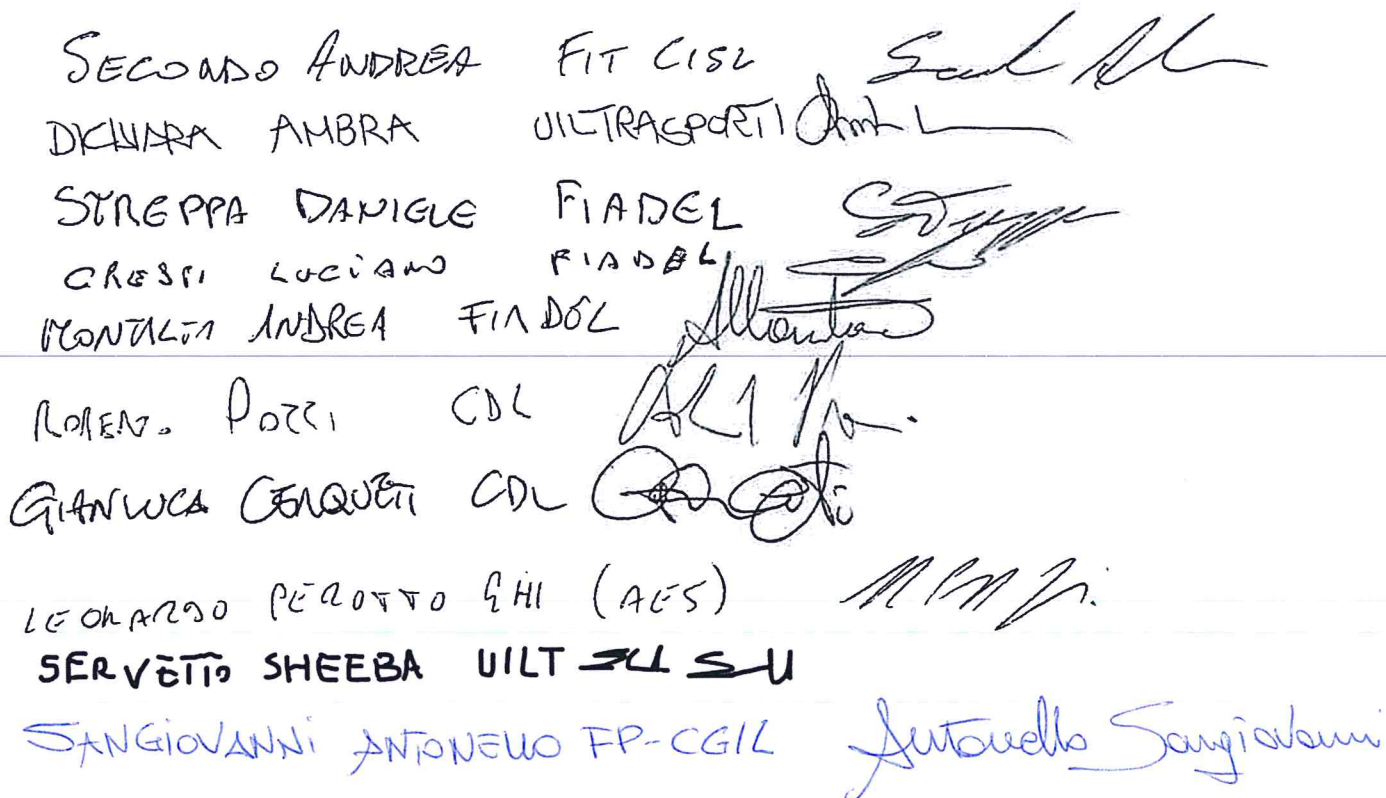 SECONDO ANDREA FIT CISL
DICHIARA AMBRA UILTRASPORTI
STREPPA DANIELE FIADEL
CRESPI LUCIANO FIADEL
ANDREA FIADEL
POZZI CDL
GIANLUCA CERQUETI CDL
LEONARDO PEROTTO GHI (AES)
SERVETTO SHEEBA UILT
SANGIOVANNI ANTONELLO FP-CGIL Antonello Sangiovanni